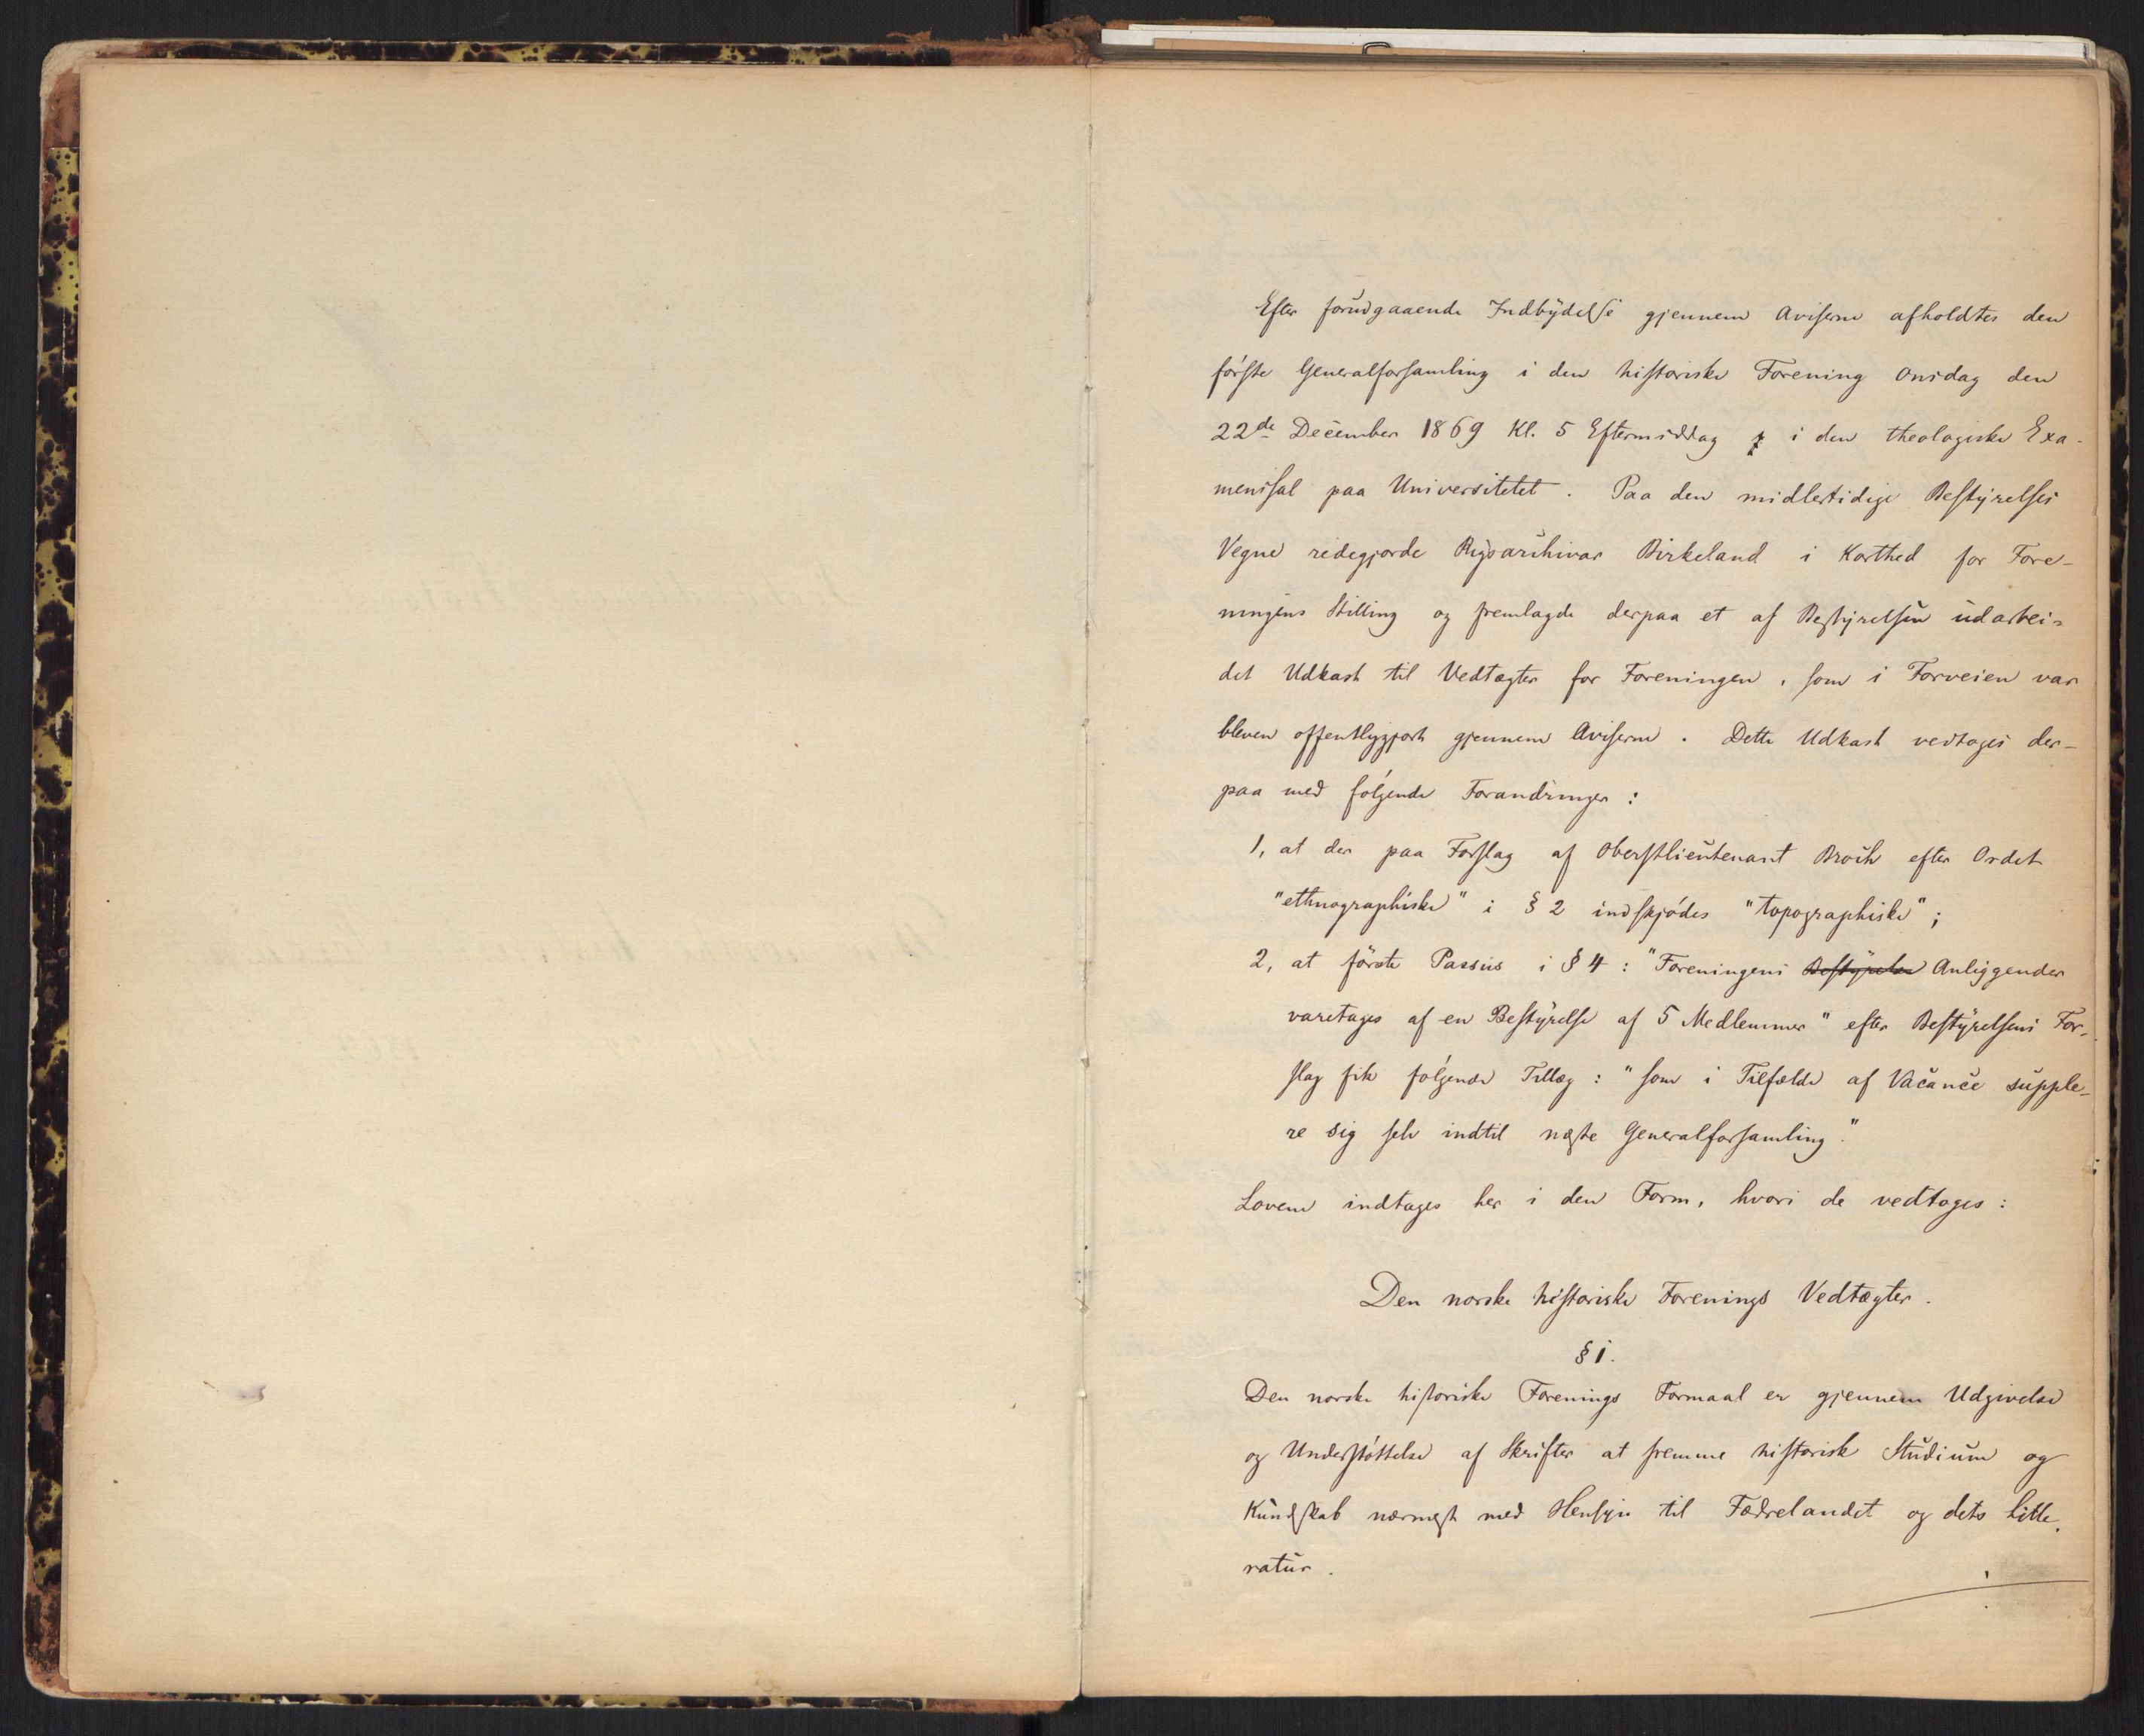 Efter forudgaaende Indbydelse gjennem Aviserne afholdtes den
første Generalforsamling i den historiske Forening Onsdag den
22de December 1869 Kl. 5 Eftermiddag i den theologiske Exa-
menssal paa Universitetet. Paa den midlertidige Bestyrelses
Vegne redegjorde Rigsarchivar Birkeland i Korthed for Fore-
ningens Stilling og fremlagde derpaa et af Bestyrelsen udarbei-
det Udkast til Vedtægter for Foreningen, som i Forveien var
bleven offentliggjort gjennem Aviserne. Dette Udkast vedtoges der-
paa med følgende Forandringer:
1, at der paa Forslag af Oberstlieutenant Broch efter Ordet
"ethnographiske" i § 2 indskjødes "topographiske";
2, at første Passus i § 4: "Foreningens Bestyrelse Anliggender
varetages af en Bestyrelse af 5 Medlemmer" efter Bestyrelsens For-
slag fik følgende Tillæg: "som i Tilfælde af Vacance supple-
re sig selv indtil næste Generalforsamling."
Lovene indtages her i den Form, hvori de vedtoges:
Den norske historiske Forenings Vedtægter.
§ 1.
Den norske historiske Forenings Formaal er gjennem Udgivelse
og Understøttelse af Skrifter at fremme historisk Studium og
Kundskab nærmest med Hensyn til Fædrelandet og dets Litte-
ratur.